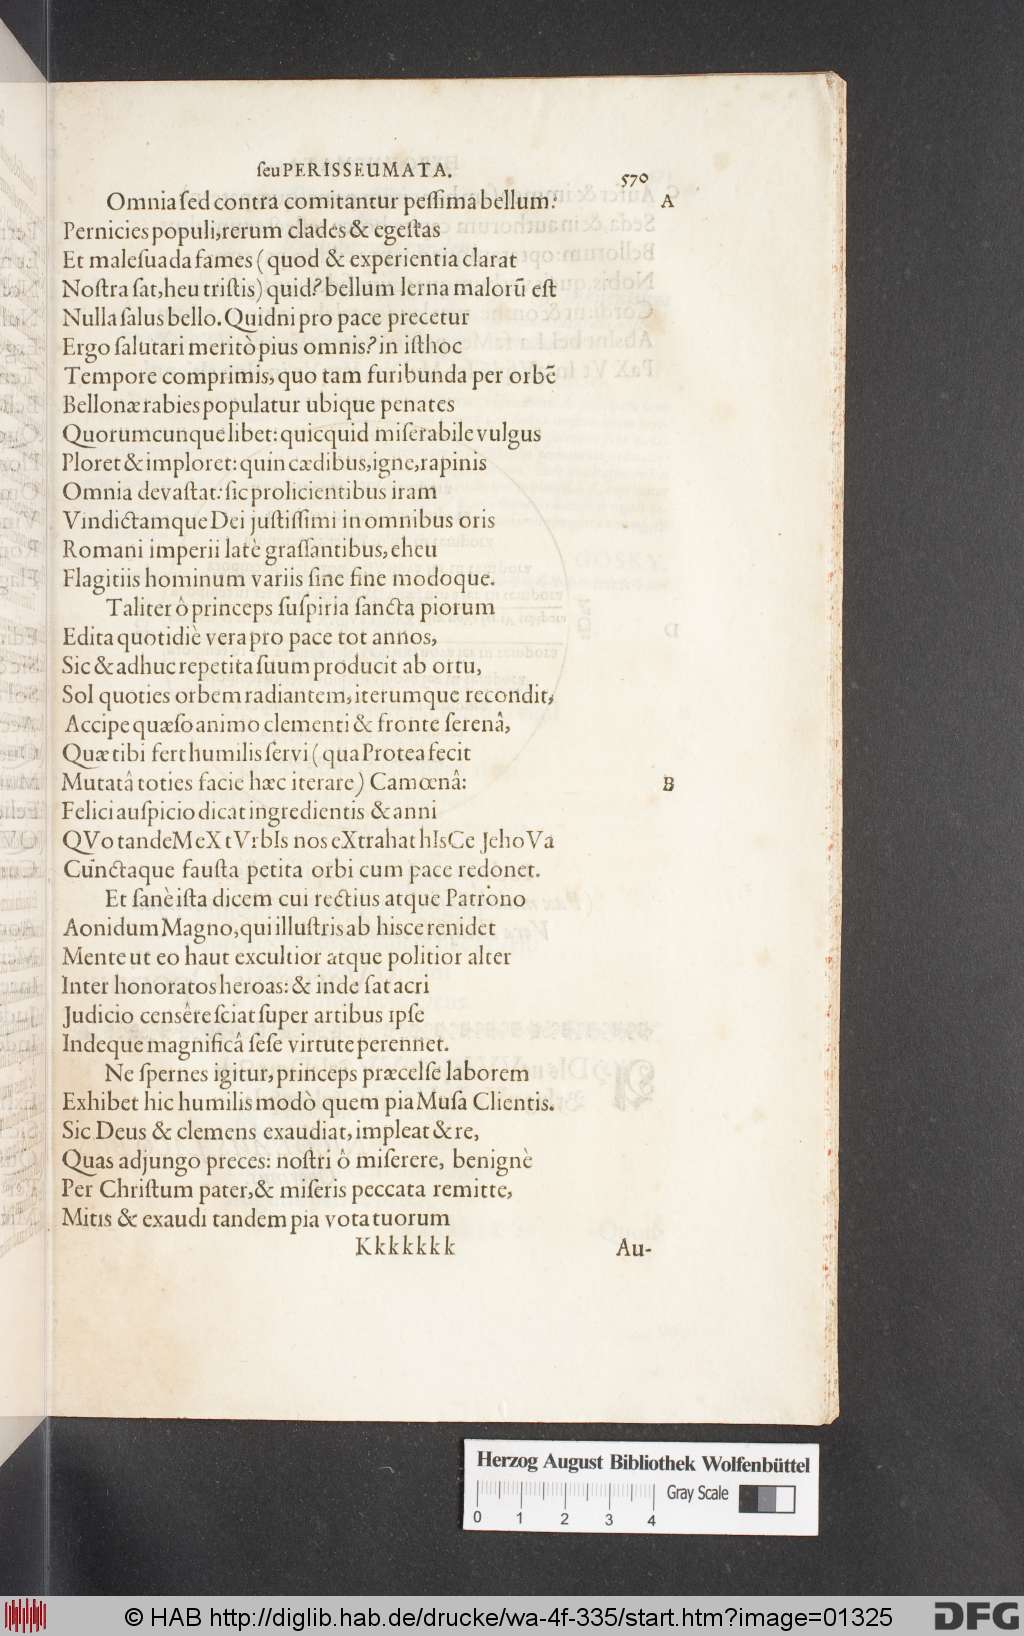 ſeu PERISSEUMATA. 570
Omnia ſed contra comitantur peſſima bellum: A
Pernicies populi, rerum clades & egeſtas
Et maleſuada fames ( quod & experientia clarat
Noſtra ſat, heu triſtis) quid? bellum lerna malorū eſt
Nulla ſalus bello. Quidni pro pace precetur
Ergo ſalutari meritò pius omnis? in iſthoc
Tempore comprimis, quo tam furibunda per orbē
Bellonæ rabies populatur ubique penates
Quorumcunque libet: quicquid miſerabile vulgus
Ploret & imploret: quin cædibus, igne, rapinis
Omnia devaſtat: ſic prolicientibus iram
Vindictamque Dei juſtiſſimi in omnibus oris
Romani imperii latè graſſantibus, eheu
Flagitiis hominum variis ſine fine modoque.
Taliter ô princeps ſuſpiria ſancta piorum
Edita quotidiè vera pro pace tot annos,
Sic & adhuc repetita ſuum producit ab ortu,
Sol quoties orbem radiantem, iterumque recondit,
Accipe quæſo animo clementi & fronte ſerenâ,
Quæ tibi fert humilis ſervi ( qua Protea fecit
Mutatâ toties facie hæc iterare) Camœnâ: B
Felici auſpicio dicat ingredientis & anni
QVo tandeM eX tVrbIs nos eXtrahat hIsCe JehoVa
Cunctaque fauſta petita orbi cum pace redonet.
Et ſanè iſta dicem cui rectius atque Patrono
Aonidum Magno, qui illuſtris ab hisce renidet
Mente ut eo haut excultior atque politior alter
Inter honoratos heroas: & inde ſat acri
Judicio censêre ſciat ſuper artibus ipſe
Indeque magnificâ ſeſe virtute perennet.
Ne ſpernes igitur, princeps præcelſe laborem
Exhibet hic humilis modò quem pia Muſa Clientis.
Sic Deus & clemens exaudiat, impleat & re,
Quas adjungo preces: noſtri ô miſerere, benignè
Per Chriſtum pater, & miſeris peccata remitte,
Mitis & exaudi tandem pia vota tuorum
Kkkkkkk Au-
Herzog August Bibliothek Wolfenbüttel
Gray Scale
0 1 2 3 4
© HAB http://diglib.hab.de/drucke/wa-4f-335/start.htm?image=01325 DFG